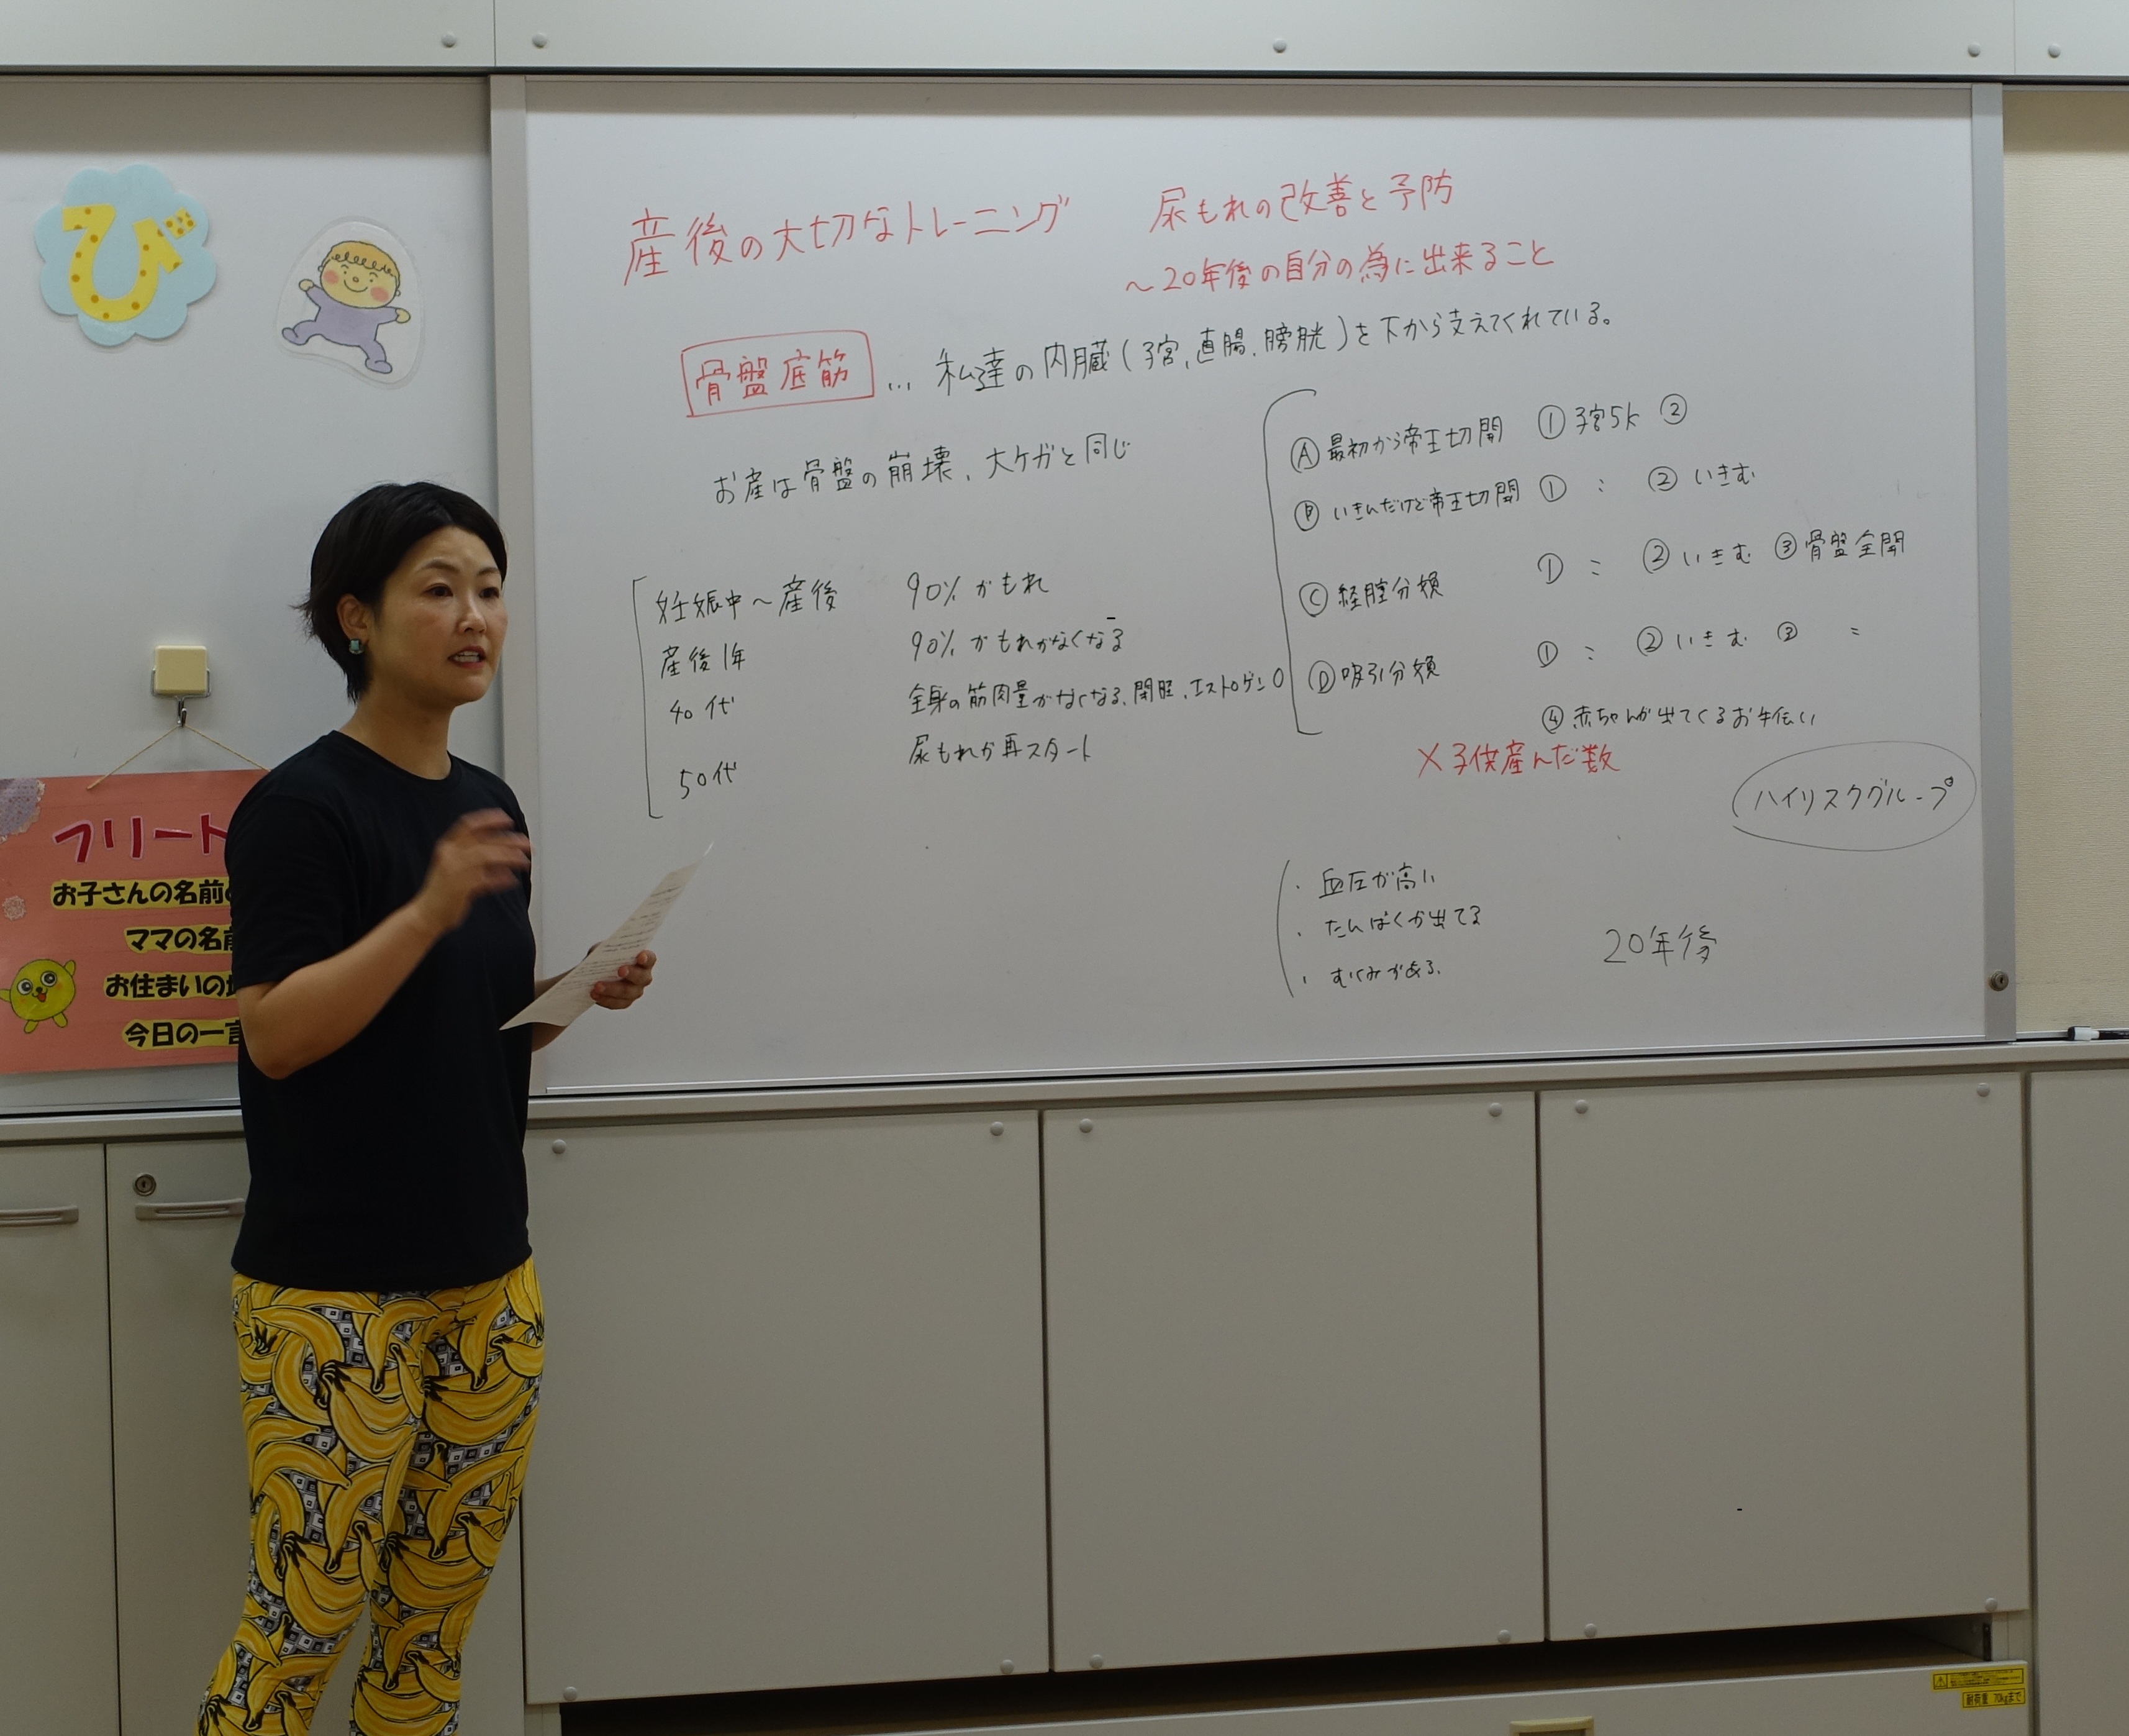 び
産後の大切なトレーニング
尿もれの改善と予防
～20年後の自分の為に出来ること
骨盤底筋 … 私達の内臓(子宮、直腸、膀胱)を下から支えてくれている。
お産は骨盤の崩壊、大ケガと同じ
妊娠中～産後 90%がもれ
産後1年 90%がもれがなくなる
40代 全身の筋肉量がなくなる、閉経、エストロゲン0
50代 尿もれが再スタート
Ⓐ 最初から帝王切開 ① 子宮5k ②
Ⓑ いきんだけど帝王切開 ① 〃 ② いきむ
Ⓒ 経腟分娩 ① 〃 ② いきむ ③ 骨盤全開
Ⓓ 吸引分娩 ① 〃 ② いきむ ③ 〃
④ 赤ちゃんが出てくるお手伝い
×子供産んだ数
ハイリスクグループ
・血圧が高い
・たんぱくが出てる
・むくみがある。
20年後
フリート
お子さんの名前
ママの名前
お住まいの
今日の一言
耐荷重 70kgまで